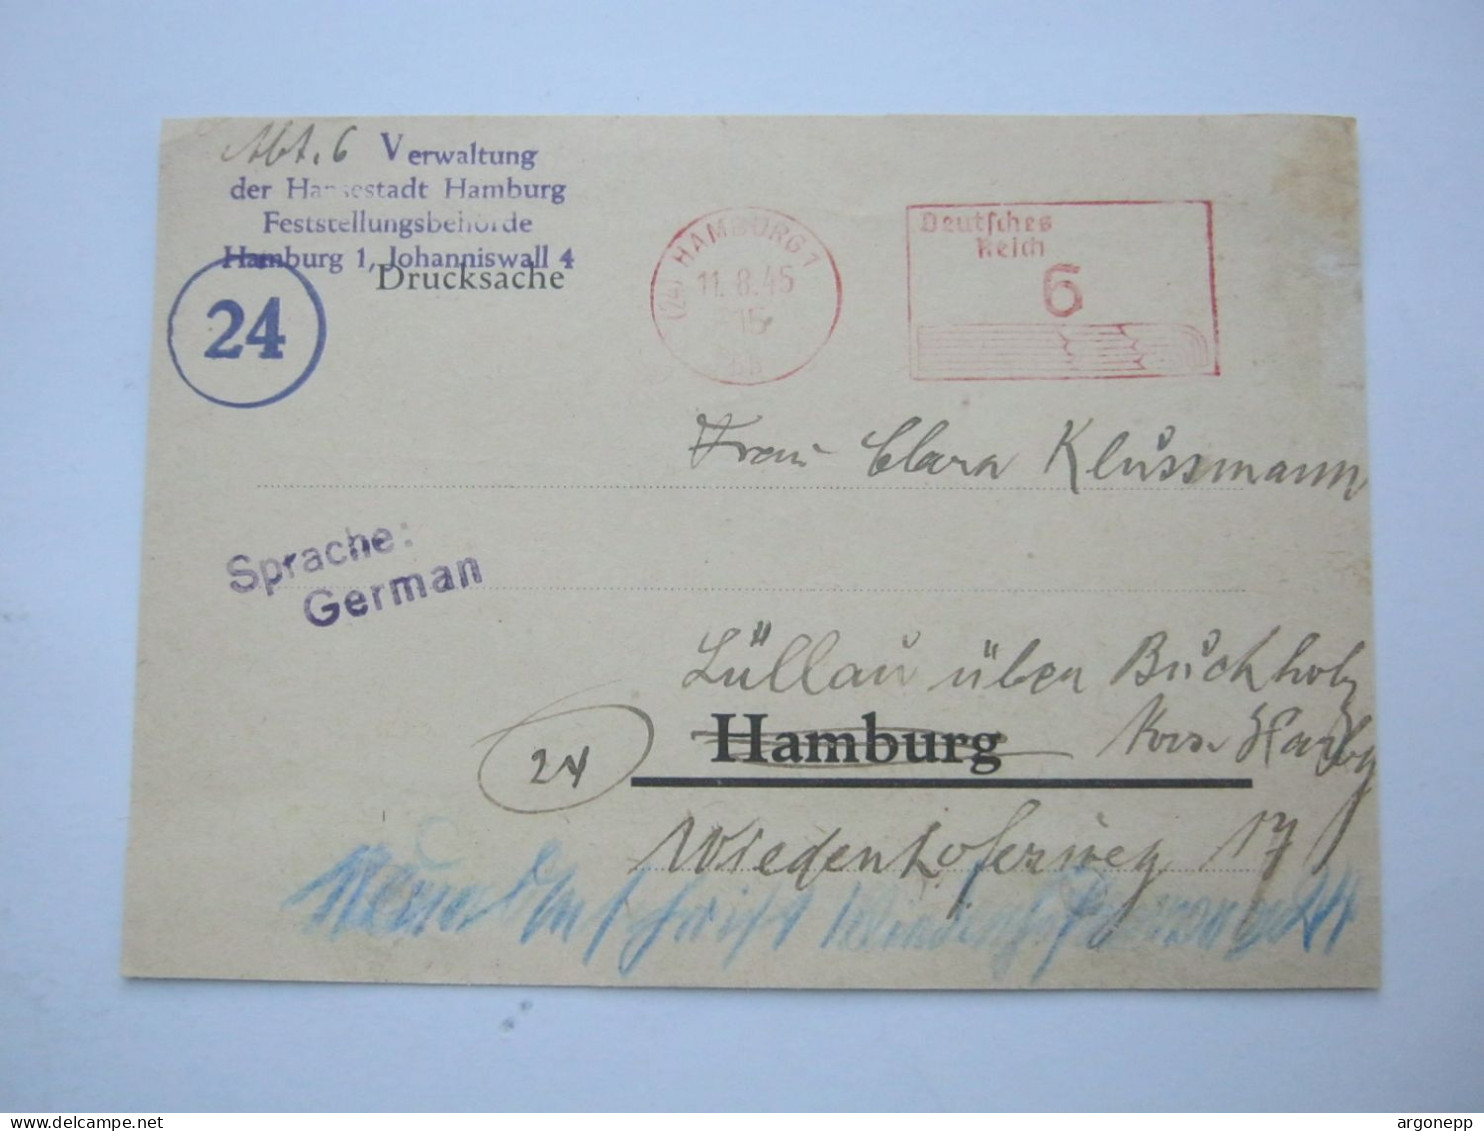 Abt. 6 Verwaltung
der Hansestadt Hamburg
Feststellungsbehörde
Hamburg 1, Johanniswall 4
Drucksache
24
(24) HAMBURG 1
11.8.45
Deutsches
Reich
6
Frau Clara Klussmann
Sprache:
German
Lüllau über Buchholz
Hamburg Krs. Harbg
24
Wiedenhoferweg 17
Neue Anschrift
argonepp